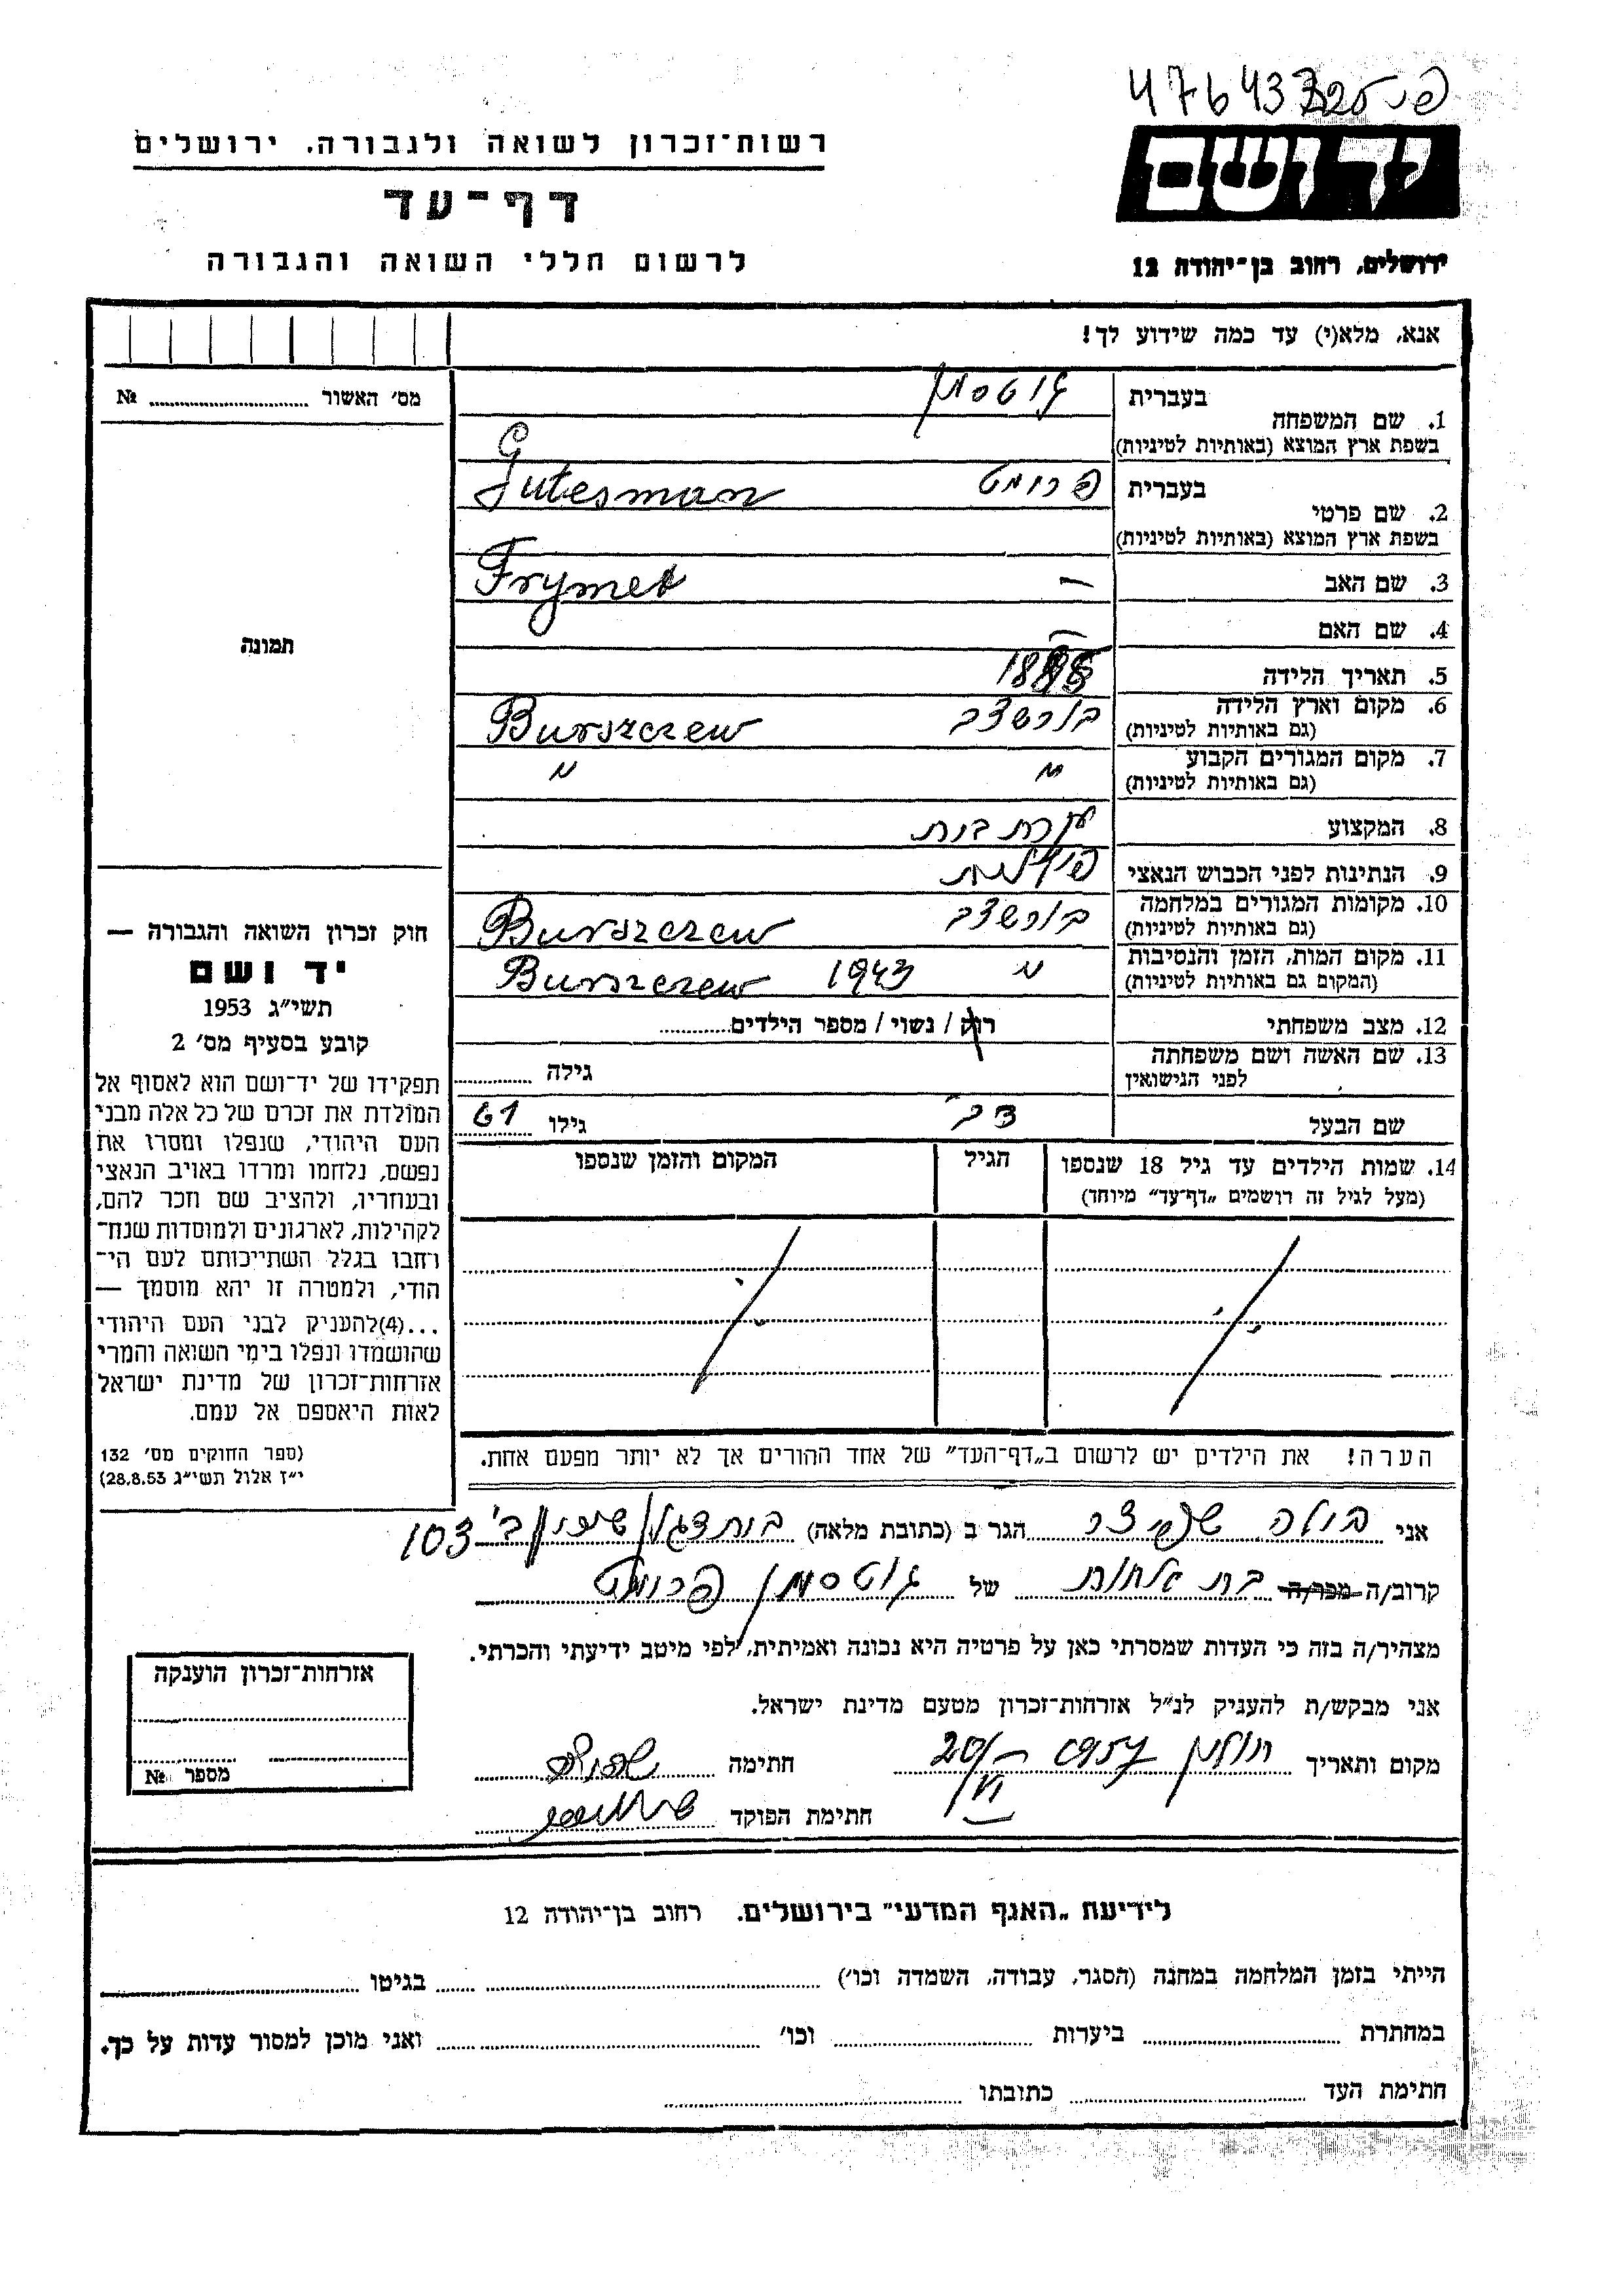 476437
רשות־זכרון לשואה ולגבורה. ירושלים
דף־עד
לרשום חללי השואה והגבורה
יד ושם
ירושלים, רחוב בן־יהודה 12
אנא, מלא(י) עד כמה שידוע לך!
מס׳ האשור № 
בעברית גוטסמן
1. שם המשפחה
בשפת ארץ המוצא (באותיות לטיניות)
Gutesman
בעברית פרומט
2. שם פרטי
בשפת ארץ המוצא (באותיות לטיניות)
Frymet
3. שם האב —
4. שם האם —
5. תאריך הלידה
6. מקום וארץ הלידה בורשצב Burszczew
(גם באותיות לטיניות)
7. מקום המגורים הקבוע " "
(גם באותיות לטיניות)
8. המקצוע עקרת בית
9. הנתינות לפני הכבוש הנאצי פולנית
10. מקומות המגורים במלחמה בורשצב Burszczew
(גם באותיות לטיניות)
11. מקום המות, הזמן והנסיבות " 1943 Burszczew
(המקום גם באותיות לטיניות)
12. מצב משפחתי רוק / נשוי / מספר הילדים
13. שם האשה ושם משפחתה
לפני הנישואין גילה
שם הבעל גילו 61
14. שמות הילדים עד גיל 18 שנספו
(מעל לגיל זה רושמים „דף־עד" מיוחד)
הגיל
המקום והזמן שנספו
תמונה
חוק זכרון השואה והגבורה —
יד ושם
תשי״ג 1953
קובע בסעיף מס׳ 2
תפקידו של יד־ושם הוא לאסוף אל
המולדת את זכרם של כל אלה מבני
העם היהודי, שנפלו ומסרו את
נפשם, נלחמו ומרדו באויב הנאצי
ובעוזריו, ולהציב שם וזכר להם,
לקהילות, לארגונים ולמוסדות שנח־
רחבו בגלל השתייכותם לעם הי־
הודי, ולמטרה זו יהא מוסמך —
...(4)להעניק לבני העם היהודי
שהושמדו ונפלו בימי השואה והמרי
אזרחות־זכרון של מדינת ישראל
לאות היאספם אל עמם.
(ספר החוקים מס׳ 132
י״ז אלול תשי״ג 28.8.53)
הערה! את הילדים יש לרשום ב„דף־העד" של אחד ההורים אך לא יותר מפעם אחת.
אני הגר ב (כתובת מלאה) בית דגן שיכון ב' 103
קרוב/ה מכר/ה בת אחות של גוטסמן פרומט
מצהיר/ה בזה כי העדות שמסרתי כאן על פרטיה היא נכונה ואמיתית, לפי מיטב ידיעתי והכרתי.
אני מבקש/ת להעניק לנ״ל אזרחות־זכרון מטעם מדינת ישראל.
מקום ותאריך חולון 1957 20/VI חתימה
חתימת הפוקד
אזרחות־זכרון הוענקה
מספר №
לידיעת „האגף המדעי" בירושלים. רחוב בן־יהודה 12
הייתי בזמן המלחמה במחנה (הסגר, עבודה, השמדה וכו׳) בגיטו
במחתרת ביערות וכו׳ ואני מוכן למסור עדות על כך.
חתימת העד כתובתו